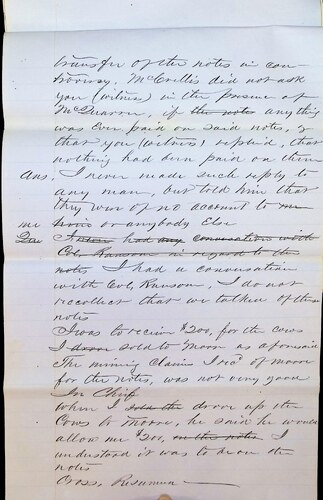 transfer of the notes in con-
troversy. McCrellis did not ask
you (witness) in the presence of
if the note anything
was ever paid on said notes, &
that you (witness) replied, that
nothing had been paid on them
Ans. I never made such reply to
any man, but told him that
they were of no account to me
me or anybody Else
had any conversation with
Col. Ransom in regard to the
notes I had a conversation
with Col. Ransom, I do not
recollect that we talked of these
notes
I was to receive $200, for the cows
I sold to Moore as aforesaid
The mining claims I rec'd of moore
for the notes, was not very good
In Chief
When I sold the drove up the
Cows to Moore, he said he would
allow me $200, on the notes I
understood it was to be on the
notes
Cross, Resumed